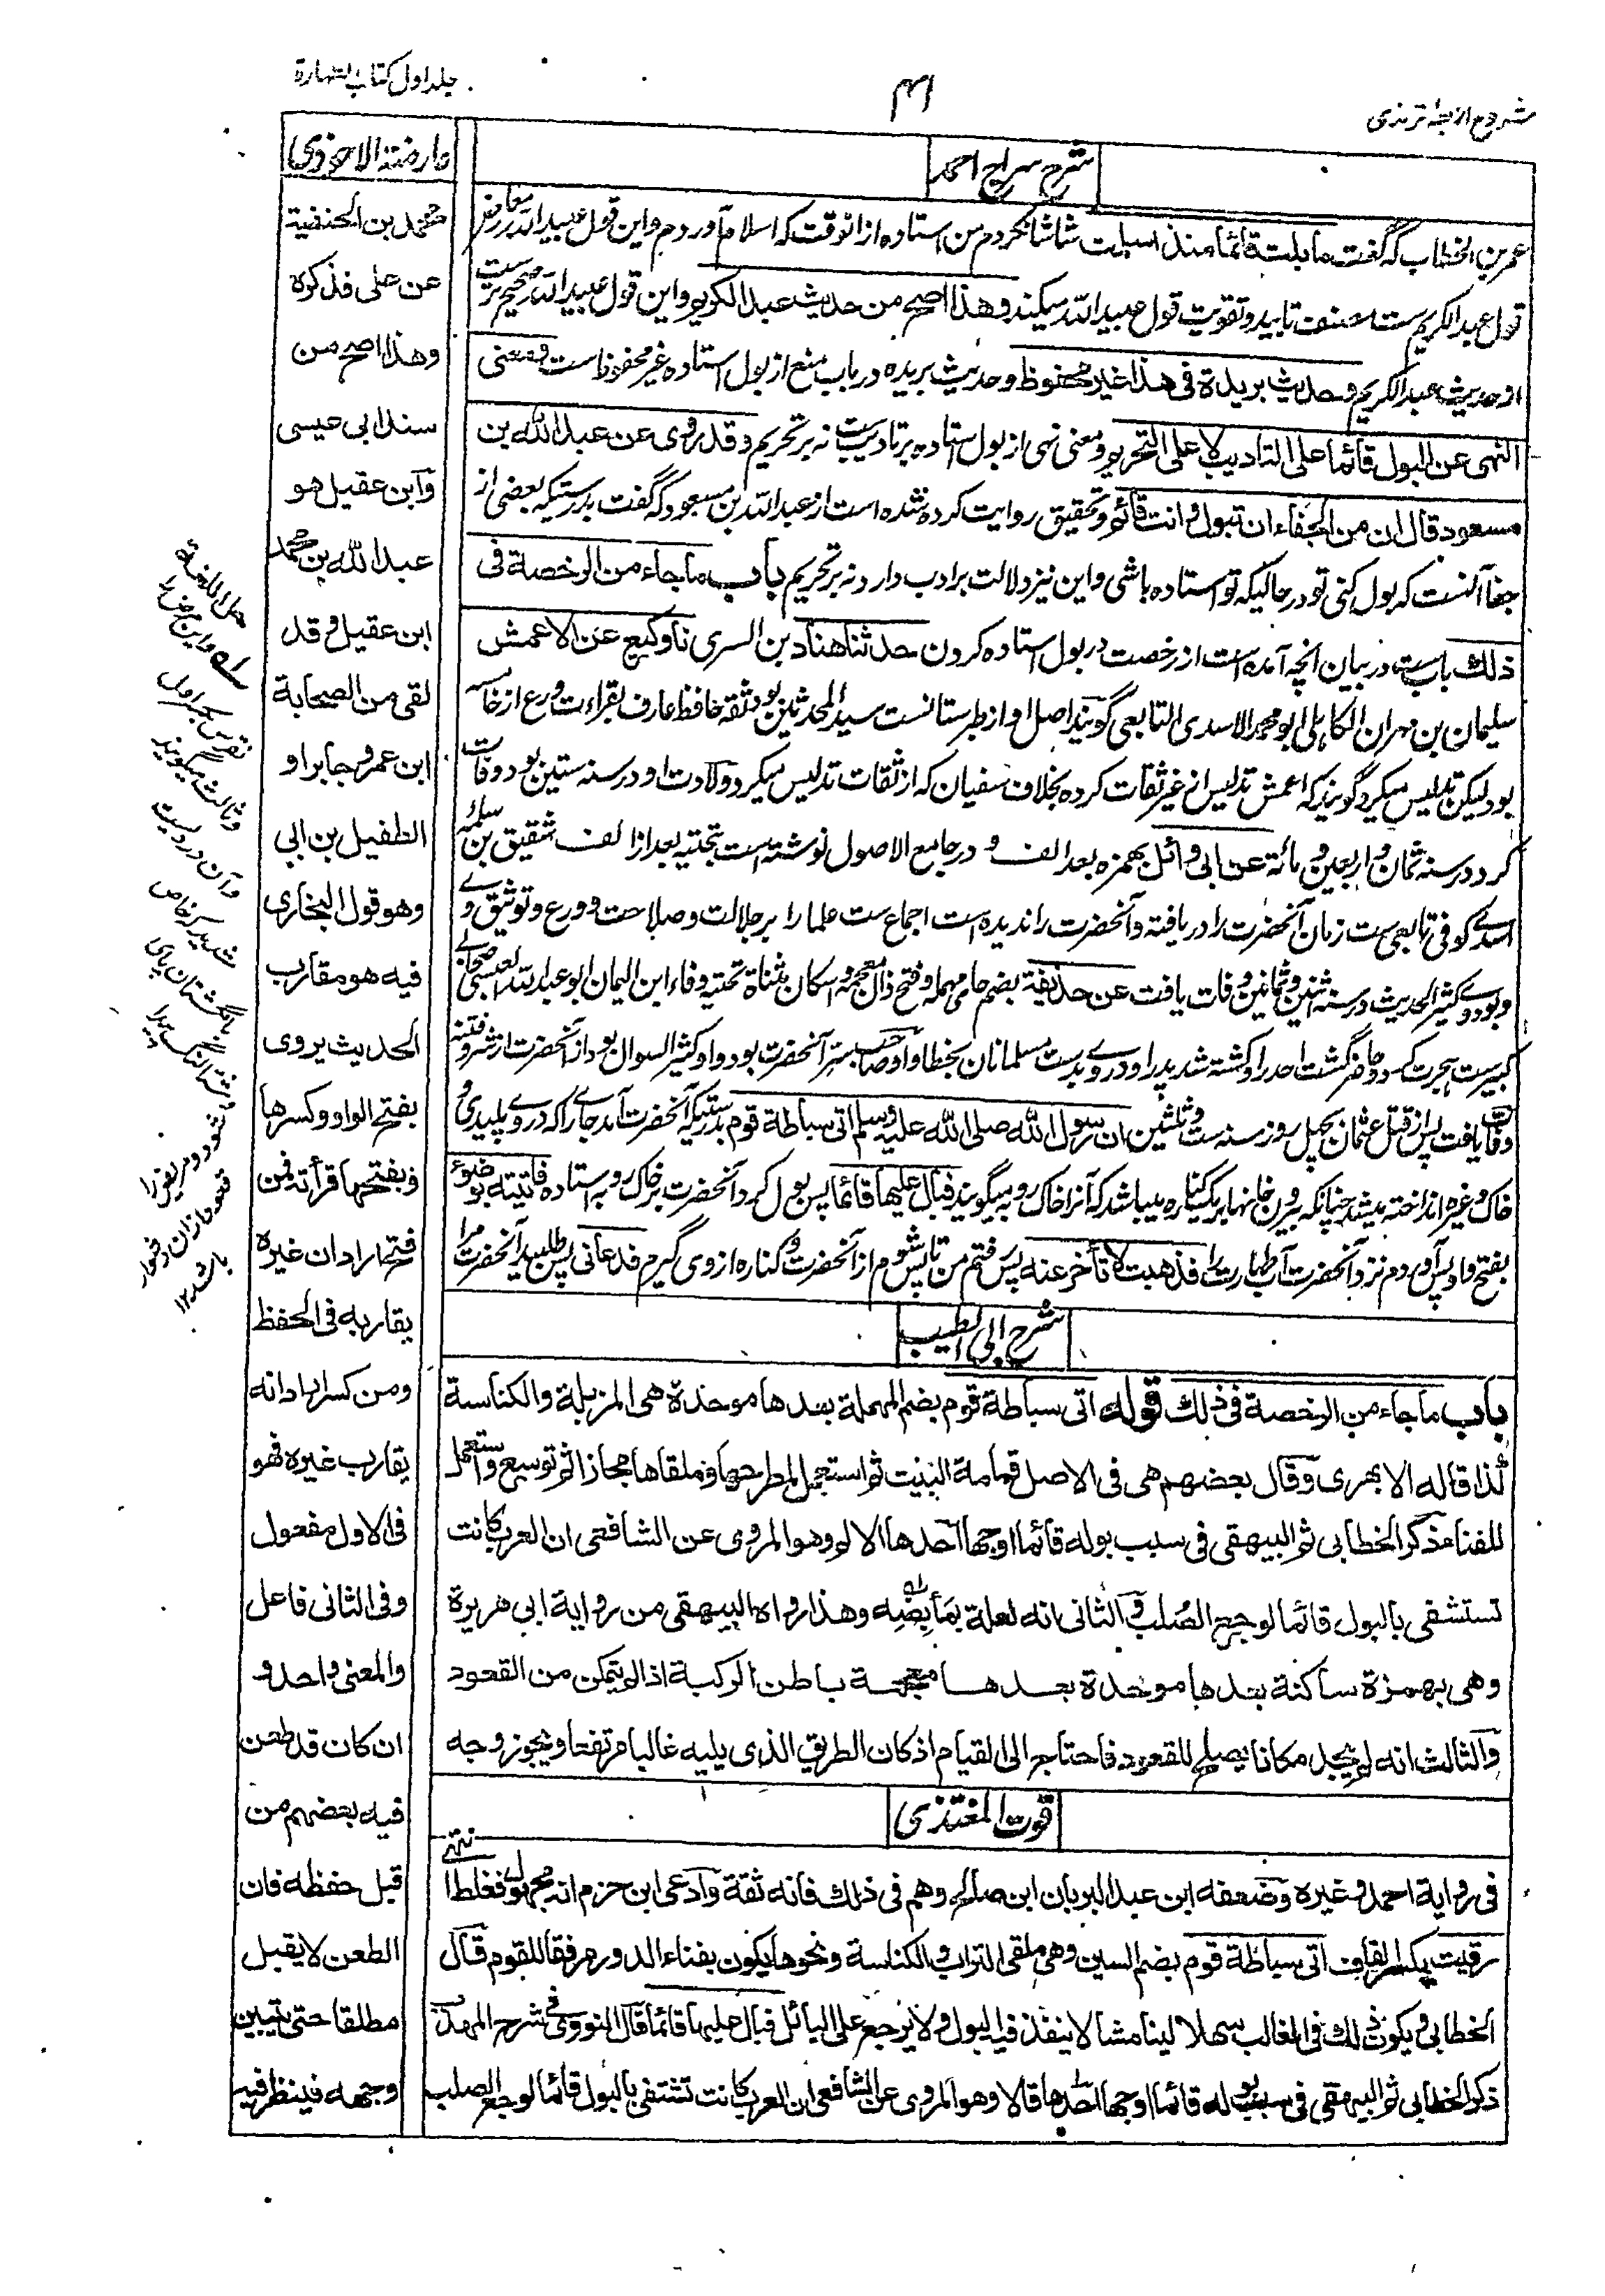 شروح اربعه ترندی
۴۱
جلد اول کتاب الطهارة
شرح سراج احمد
عمر بن الخطاب که گفت ما بلت قائما منذ اسلمت شاشا نکردم من استاده ازانوقت که اسلام آوردم و این قول عبید الله معارض
قول عبد الکریم ست مصنف تایید و تقویت قول عبید الله میکند وهذا اصح من حدیث عبد الکریم و این قول عبید الله صحیح تر ست
از حدیث عبد الکریم وحدیث بریدة فی هذا غیر محفوظ و حدیث بریده در باب منع از بول استاده غیر محفوظ است ومعنی
النهی عن البول قائما علی التادیب لا علی التحریم و معنی نهی از بول استاده بر تادیب ست نه بر تحریم وقد روی عن عبد الله بن
مسعود قال ان من الجفاء ان تبول وانت قائم و تحقیق روایت کرده شده است از عبد الله بن مسعود که گفت بدرستیکه بعضی از
جفا آنست که بول کنی تو در حالیکه تو استاده باشی و این نیز دلالت بر ادب دارد نه بر تحریم باب ما جاء من الرخصة فی
ذلك باب ست در بیان آنچه آمده است از رخصت در بول استاده کردن حدثنا هناد بن السری نا وکیع عن الاعمش
سلیمان بن مهران الکاهلی ابو محمد الاسدی التابعی گویند اصل او از طبرستانست سید المحدثین بود ثقه حافظ عارف بقراءت ورع از خامسه
بود لیکن تدلیس میکرد گویند که اعمش تدلیس از غیر ثقات کرده بخلاف سفیان که از ثقات تدلیس میکرد ولادت او در سنه ستین بود و وفات
کرد در سنه ثمان و اربعین و مائة عن ابی وائل بهمزه بعد الف و در جامع الاصول نوشته است بتحتیه بعد از الف شقیق بن سلمه
اسدی کوفی تابعی ست زمان آنحضرت را دریافته و آنحضرت را ندیده است اجماع ست علما را بر جلالت و صلاحت و ورع و توثیق وے
و بود وے کثیر الحدیث در سنه اثنین و ثمانین وفات یافت عن حذیفة بضم حای مهمله و فتح ذال معجمه و اسکان مثناة تحتیه وفاء ابن الیمان ابو عبد الله العبسی صحابی
کبیر ست هجرت کرد و حاضر گشت احد را و کشته شد پدر او در وے بدست مسلمانان بخطا و او صاحب سر آنحضرت بود و او کثیر السوال بود از آنحضرت از شر و فتنه
وفات یافت پس از قتل عثمان بچهل روز سنه ست و ثلثین ان رسول الله صلی الله علیه وسلم اتی سباطة قوم بدرستیکه آنحضرت آمد جاے را که در وے پلیدی و
خاک و غیره انداخته میشد چنانکه بیرون خانها بریکناره میباشد که آنرا خاک روبه میگویند فبال علیها قائما پس بول کرد آنحضرت بر خاک روبه استاده فاتیته بوضوء
بفتح واو پس آوردم نزد آنحضرت آب طهارت را فذهبت لاتأخر عنه پس رفتم من تا پس شوم از آنحضرت و کناره از وی گیرم فدعانی پس طلبید آنحضرت مرا
شرح ابی الطیب
باب ما جاء من الرخصة فی ذلك قوله اتی سباطة قوم بضم المهملة بعدها موحدة هی المزبلة والکناسة
کذا قاله الابهری وقال بعضهم هی فی الاصل قمامة البیت ثم استعمل لمطرحها وملقاها مجازا ثم توسیع واستعمل
للفناء ذکر الخطابی ثم البیهقی فی سبب بوله قائما اوجها احدها الاول وهو المروی عن الشافعی ان العرب کانت
تستشفی بالبول قائما لوجع الصلب والثانی انه لعلة بمأبضه وهذا رواه البیهقی من روایة ابی هریرة
وهی بهمزة ساکنة بعدها موحدة بعدها معجمة باطن الرکبة اذ لم یتمکن من القعود
والثالث انه لم یجد مکانا یصلح للقعود فاحتاج الی القیام اذ کان الطریق الذی یلیه غالبا مرتفعا ویجوز وجه
قوت المغتذی
فی روایة احمد وغیره وضعفه ابن عبد البر بان ابن صالح وهم فی ذلك فانه ثقة وادعی ابن حزم انه مجهول فغلط انتهی
رقیت بکسر القاف اتی سباطة قوم بضم السین وهی ملقی التراب والکناسة ونحوها یکون بفناء الدور مرفقا للقوم قال
الخطابی ویکون ذلك فی الغالب سهلا لینا مشا لا ینفذ فیه البول ولا یرجع علی البائل فبال علیها قائما قال النووی فی شرح المهذب
ذکر الخطابی ثم البیهقی فی سبب بوله قائما اوجها احدها قالا وهو المروی عن الشافعی ان العرب کانت تشتفی بالبول قائما لوجع الصلب
عارضة الاحوذی
محمد بن الحنفیة
عن علی فذکره
وهذا اصح من
سند ابی عیسی
وابن عقیل هو
عبد الله بن محمد
ابن عقیل وقد
لقی من الصحابة
ابن عمر وجابر او
الطفیل بن ابی
وهو قول البخاری
فیه هو مقارب
الحدیث یروی
بفتح الواو وکسرها
وبفتحها قرأته فمن
فتح اراد ان غیره
یقاربه فی الحفظ
ومن کسر اراد انه
یقارب غیره فهو
فی الاول مفعول
وفی الثانی فاعل
والمعنی واحد و
ان کان قد طعن
فیه بعضهم من
قبل حفظه فان
الطعن لا یقبل
مطلقا حتی یتبین
وجهه فینظر فیه
حل اللغات
واین مرض را
نقرس بکسر اول
وثالث میگویند
وآن دردیست
شدید که خاص
بانگشتان پای
شود ومریض را